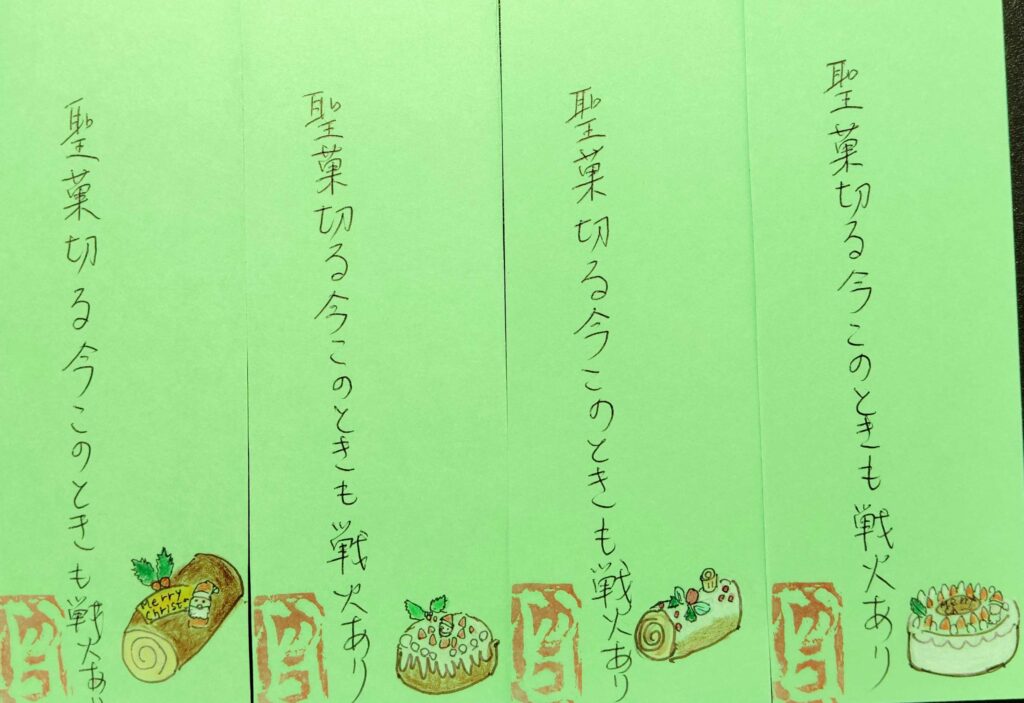 聖菓切る今このときも戦火あり
聖菓切る今このときも戦火あり
聖菓切る今このときも戦火あり
聖菓切る今このときも戦火あり
Merry
Christmas